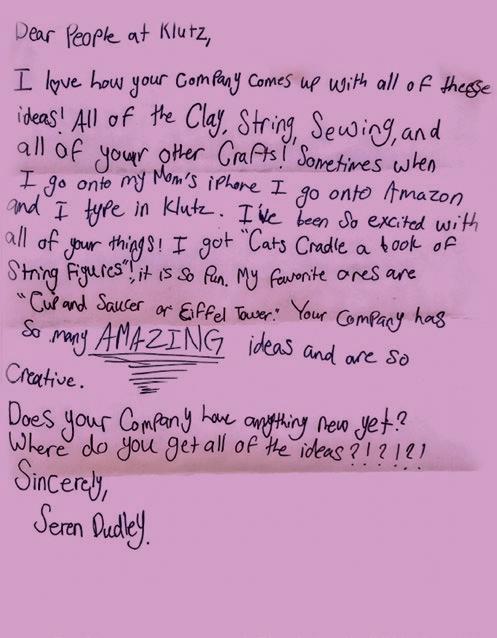 Dear People at Klutz,
I love how your Company comes up with all of these
ideas! All of the Clay, String, Sewing, and
all of your other Crafts! Sometimes when
I go onto my Mom's iPhone I go onto Amazon
and I type in Klutz. I've been So excited with
all of your things! I got "Cats Cradle a book of
String Figures"! it is so fun. My favorite ones are
"Cup and Saucer or Eiffel Tower." Your Company has
So many AMAZING ideas and are so
Creative.
Does your Company have anything new yet?
Where do you get all of the ideas?!?!?!
Sincerely,
Seren Dudley.